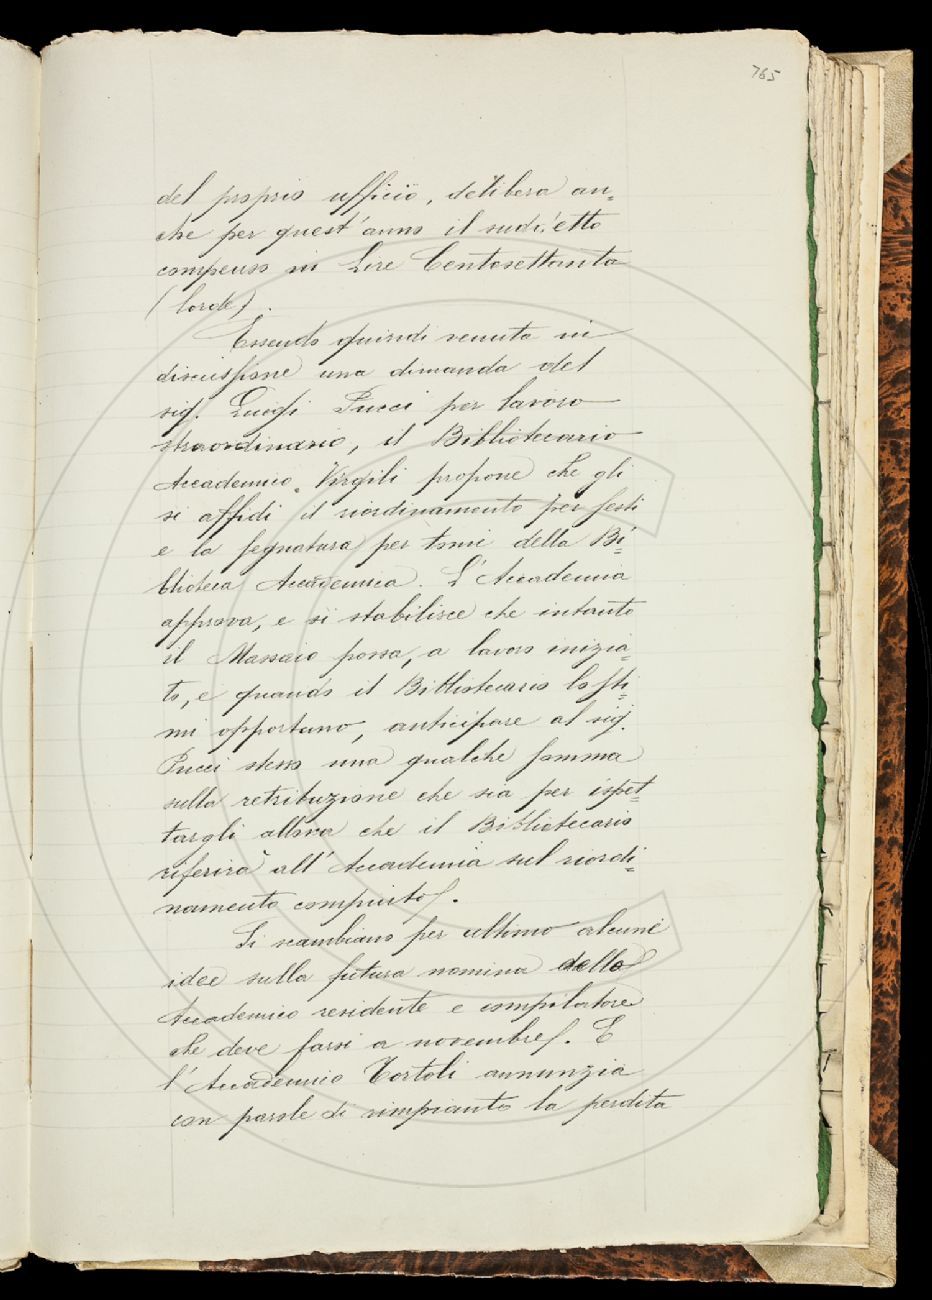 765
del proprio ufficio, delibera an=
che per quest'anno il sudd.etto
compenso in Lire Centosettanta
(lorde).
Essendo quindi venuta in
discussione una dimanda del
sig. Luigi Pucci per lavoro
straordinario, il Bibliotecario
Accademico Virgili propone che gli
si affidi il riordinamento per testi
e la segnatura per tomi della Bi=
blioteca Accademica. L'Accademia
approva, e si stabilisce che intanto
il Massaio possa, a lavoro inizia=
to, e quando il Bibliotecario lo sti=
mi opportuno, anticipare al sig.
Pucci stesso una qualche somma
sulla retribuzione che sia per ispet=
targli allora che il Bibliotecario
riferirà all'Accademia sul riordi=
namento compiuto.
Si scambiano per ultimo alcune
idee sulla futura nomina dello
Accademico residente e compilatore
che deve farsi a novembre. E
l'Accademico Tortoli annunzia
con parole di rimpianto la perdita